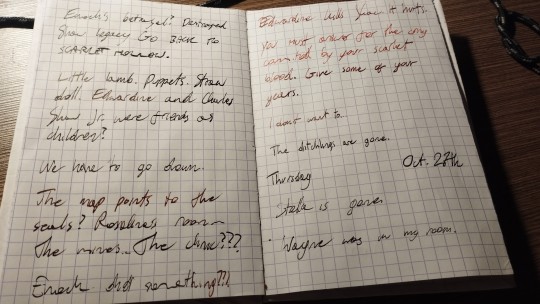 Enoch's betrayal? Destroyed
Shaw legacy Go BACK TO
SCARLET HOLLOW.
Little lamb. Puppets. Straw
doll. Edwardine and Charles
Shaw Jr. were friends as
children?
We have to go down.
The map points to the
seals? Rosalina's room
The mines... The clinic???
Enoch did something???
Edwardine kills Shaw. It hurts.
You must answer for the
committed by your scarlet
blood. Give some of your
years.
I don't want to.
The ditchlings are gone.
Oct. 27th
Thursday
Stella is gone.
Wayne was in my room.